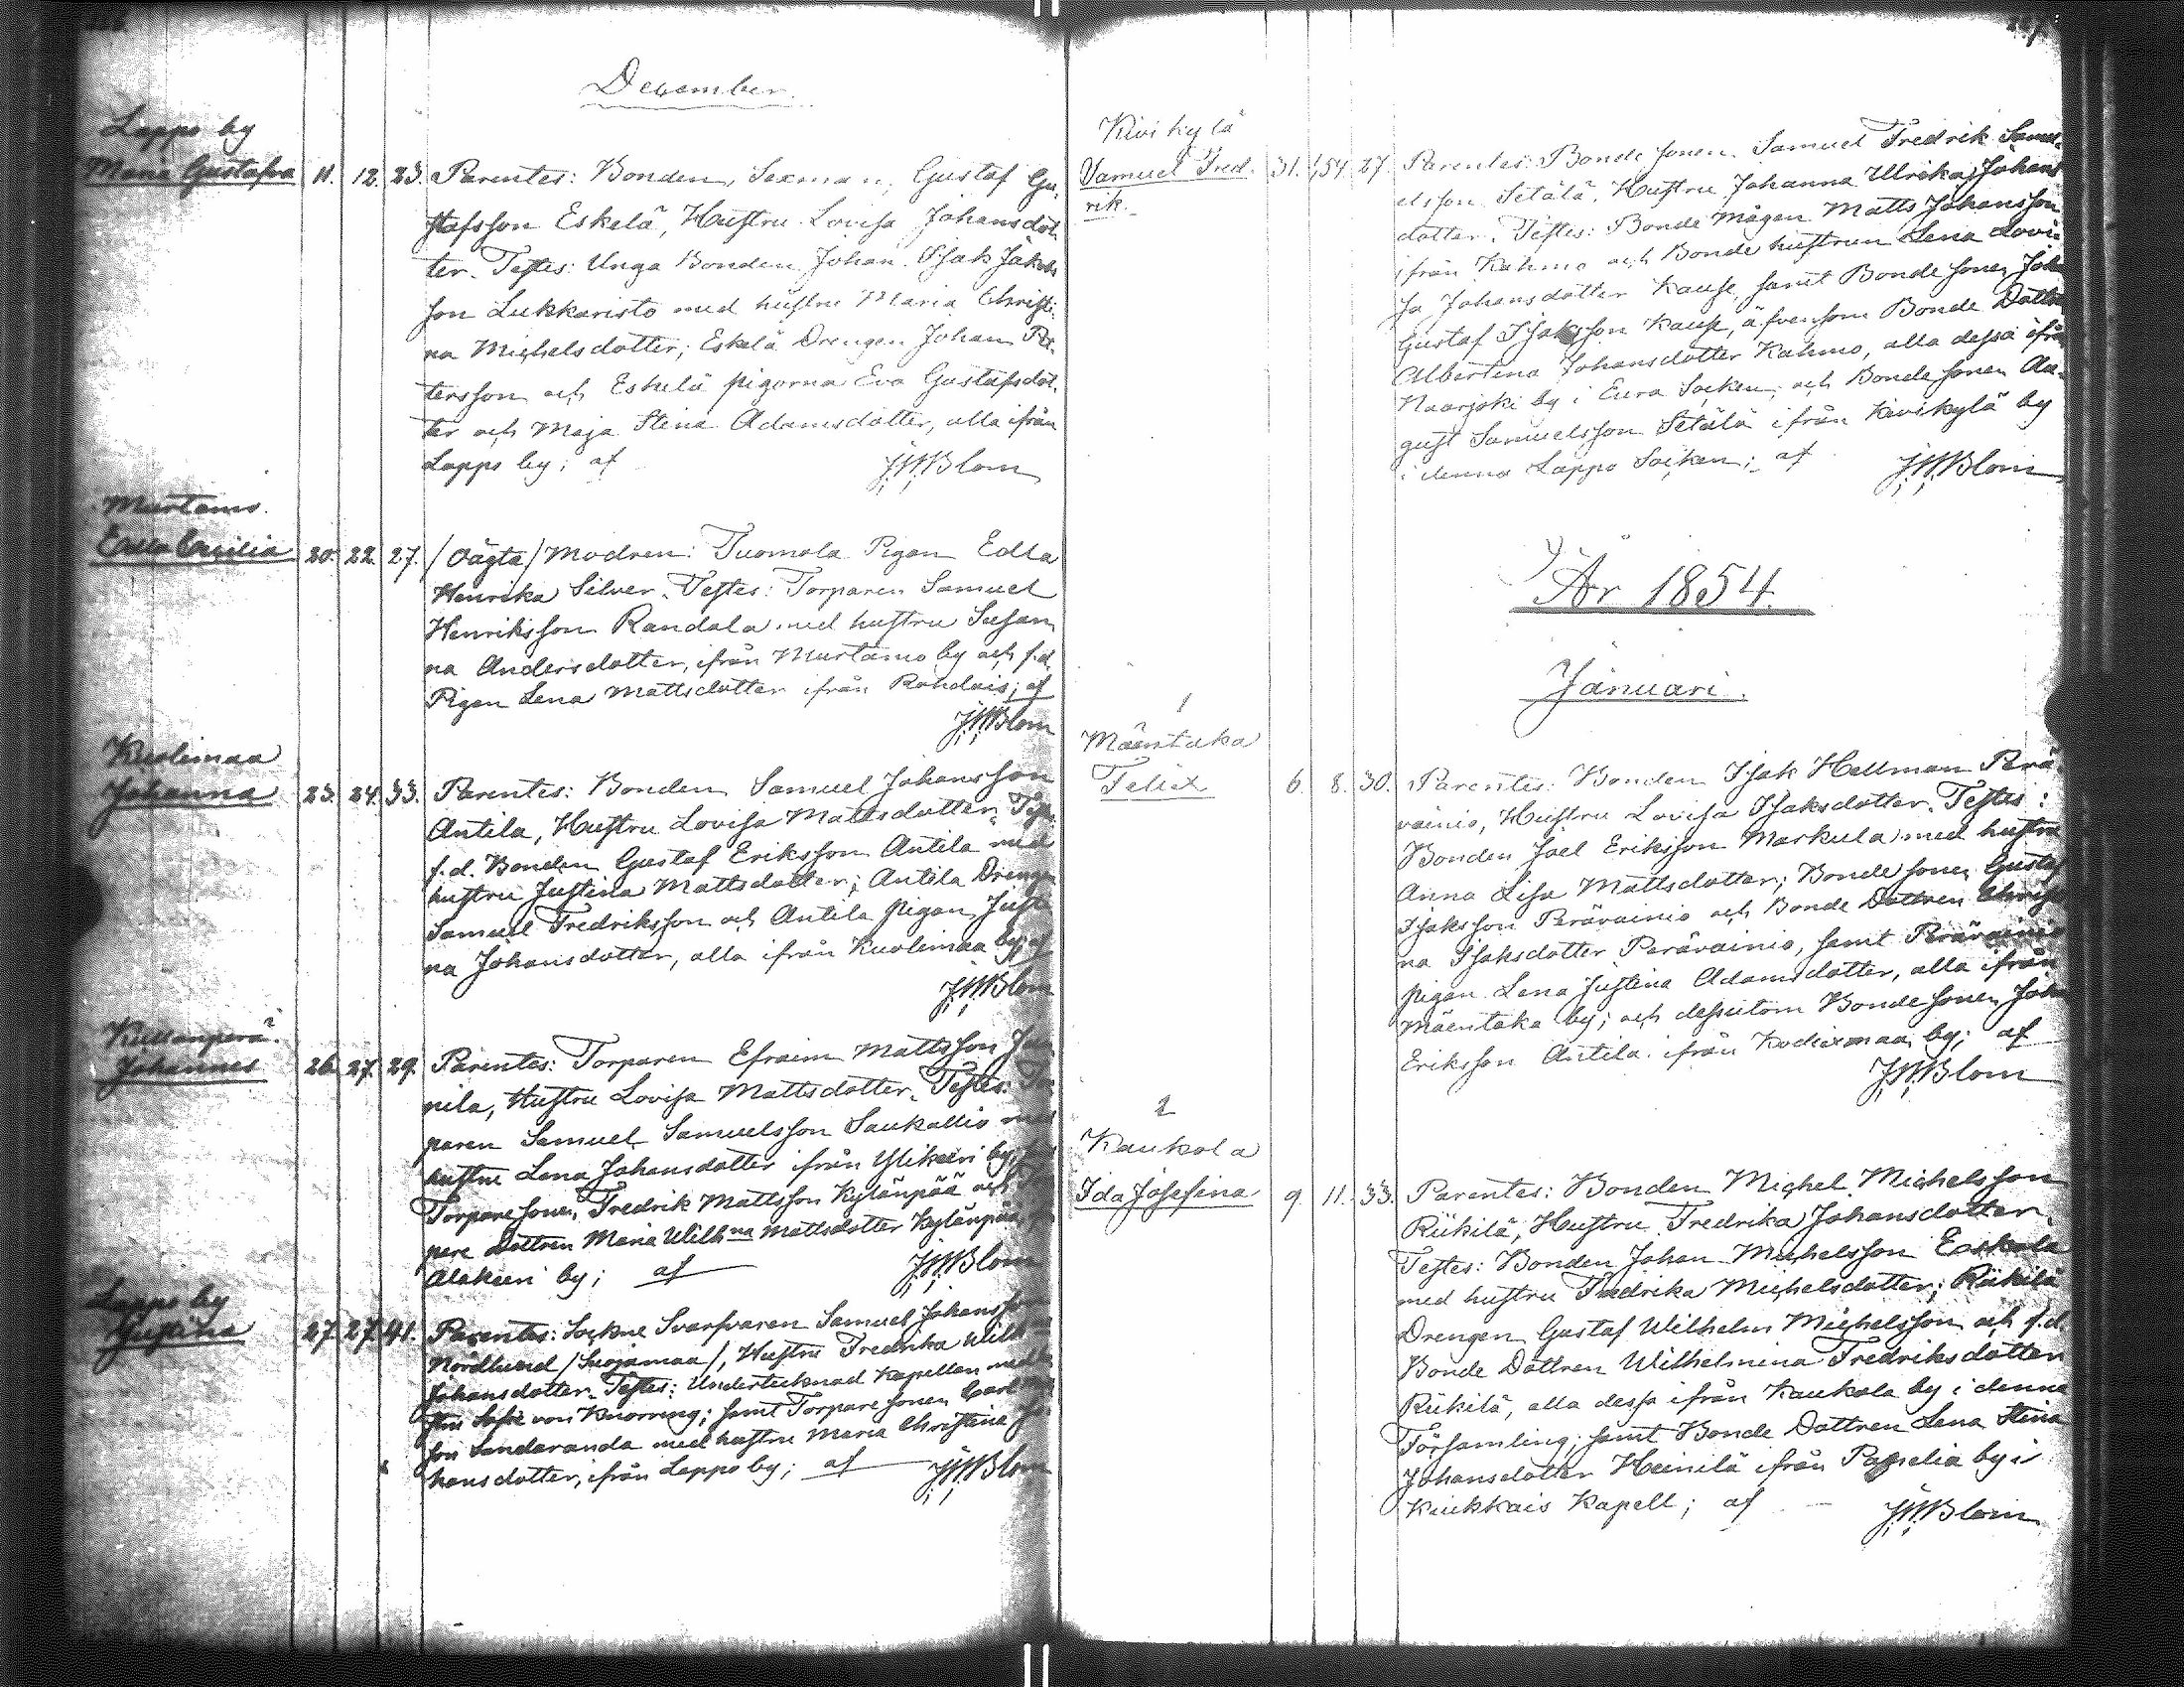 December.
Lappo by
Maria Gustafva 11. 12. 23. Parentes: Bonden, Sexman, Gustaf Gu-
stafsson Eskelä, Hustru Lovisa Johansdot-
ter. Testes: Unga Bonden Johan Isak Jakobs
son Lukkaristo med hustru Maria Christi-
na Michelsdotter; Eskelä Drengen Johan Pet-
tersson och Eskelä pigorna Eva Gustafsdot-
ter och Maja Stina Adamsdotter, alla ifrån
Lappo by; af JWBlom
Murtamo.
Edla Cecilia 20. 22. 27. /Oägta/ Modren: Tuomola Pigan Edla
Henrika Silver. Testes: Torparen Samuel
Henriksson Randala med hustru Susan
na Andersdotter, ifrån Murtamo by och f.d.
Pigan Lena Mattsdotter ifrån; af
JWBlom
Kuolimaa
Johanna 23. 24. 33. Parentes: Bonden Samuel Johansson
Antila, Hustru Lovisa Mattsdotter. Testes:
f.d. Bonden Gustaf Eriksson Antila med
hustru Justina Mattsdotter; Antila Drengen
Samuel Fredriksson och Antila pigan Justi
na Johansdotter, alla ifrån Kuolimaa by; af
JWBlom
Kullanperä.
Johannes 26. 27. 29. Parentes: Torparen Efraim Mattsson
nila, Hustru Lovisa Mattsdotter. Testes: Tor
paren Samuel Samuelsson Saukallio med
hustru Lena Johansdotter ifrån Ylikeri by,
Torparesonen Fredrik Mattsson Kylänpää och
pare Dottren Maria Wilhna Mattsdotter Kylänpää,
Alakeri by; af JWBlom
Lappo by
Justina 27. 27. 41. Parentes: Sockne Svarfvaren Samuel Johansson
Nordlund /Suojamaa/, Hustru Fredrika Wilh
Johansdotter. Testes: Undertecknad Kapellan med
stru Sofie von Knorring; samt Torparesonen Carl
son Sandaranda med hustru Maria Christina Jo
hansdotter, ifrån Lappo by; af JWBlom
Kivikylä
Samuel Fred- 31. 1/54. 27. Parentes: Bondesonen Samuel Fredrik Samu-
rik.
elsson Setälä, Hustru Johanna Ulrika Johans
dotter. Testes: Bonde Mågen Matts Johansson
ifrån Kahmo och Bondehustrun Lena Lovi-
sa Johansdotter Kause, samt Bondesonen Joh
Gustaf Isaksson Kause, äfvensom Bonde Dottren
Albertina Johansdotter Kahmo, alla dessa ifrån
Naarjoki by i Eura Socken; och Bondesonen Au-
gust Samuelsson Setälä ifrån Kivikylä by
i denna Lappo Socken; af JWBlom
År 1854.
Januari.
1
Mäentaka
Felix 6. 8. 30. Parentes: Bonden Isak Hellman Perä-
vainio, Hustru Lovisa Isaksdotter. Testes:
Bonden Joel Eriksson Markula med hustru
Anna Lisa Mattsdotter; Bondesonen Gustaf
Isaksson Perävainio och Bonde Dottren Christi
na Isaksdotter Perävainio, samt Perävainio
pigan Lena Justina Adamsdotter, alla ifrån
Mäentaka by; och dessutom Bondesonen Joh
Eriksson Antila ifrån by; af
JWBlom
2
Kaukola
Ida Josefina 9. 11. 33. Parentes: Bonden Michel Michelsson
Riikilä, Hustru Fredrika Johansdotter.
Testes: Bonden Johan Michelsson Eskola
med hustru Fredrika Michelsdotter; Riikilä
Drengen Gustaf Wilhelm Michelsson och f.d.
Bonde Dottren Wilhelmina Fredriksdotter
Riikilä, alla dessa ifrån Kaukola by i denna
Församling; samt Bonde Dottren Lena Stina
Johansdotter Heinilä ifrån Panelia by i
Kiukkais Kapell; af JWBlom